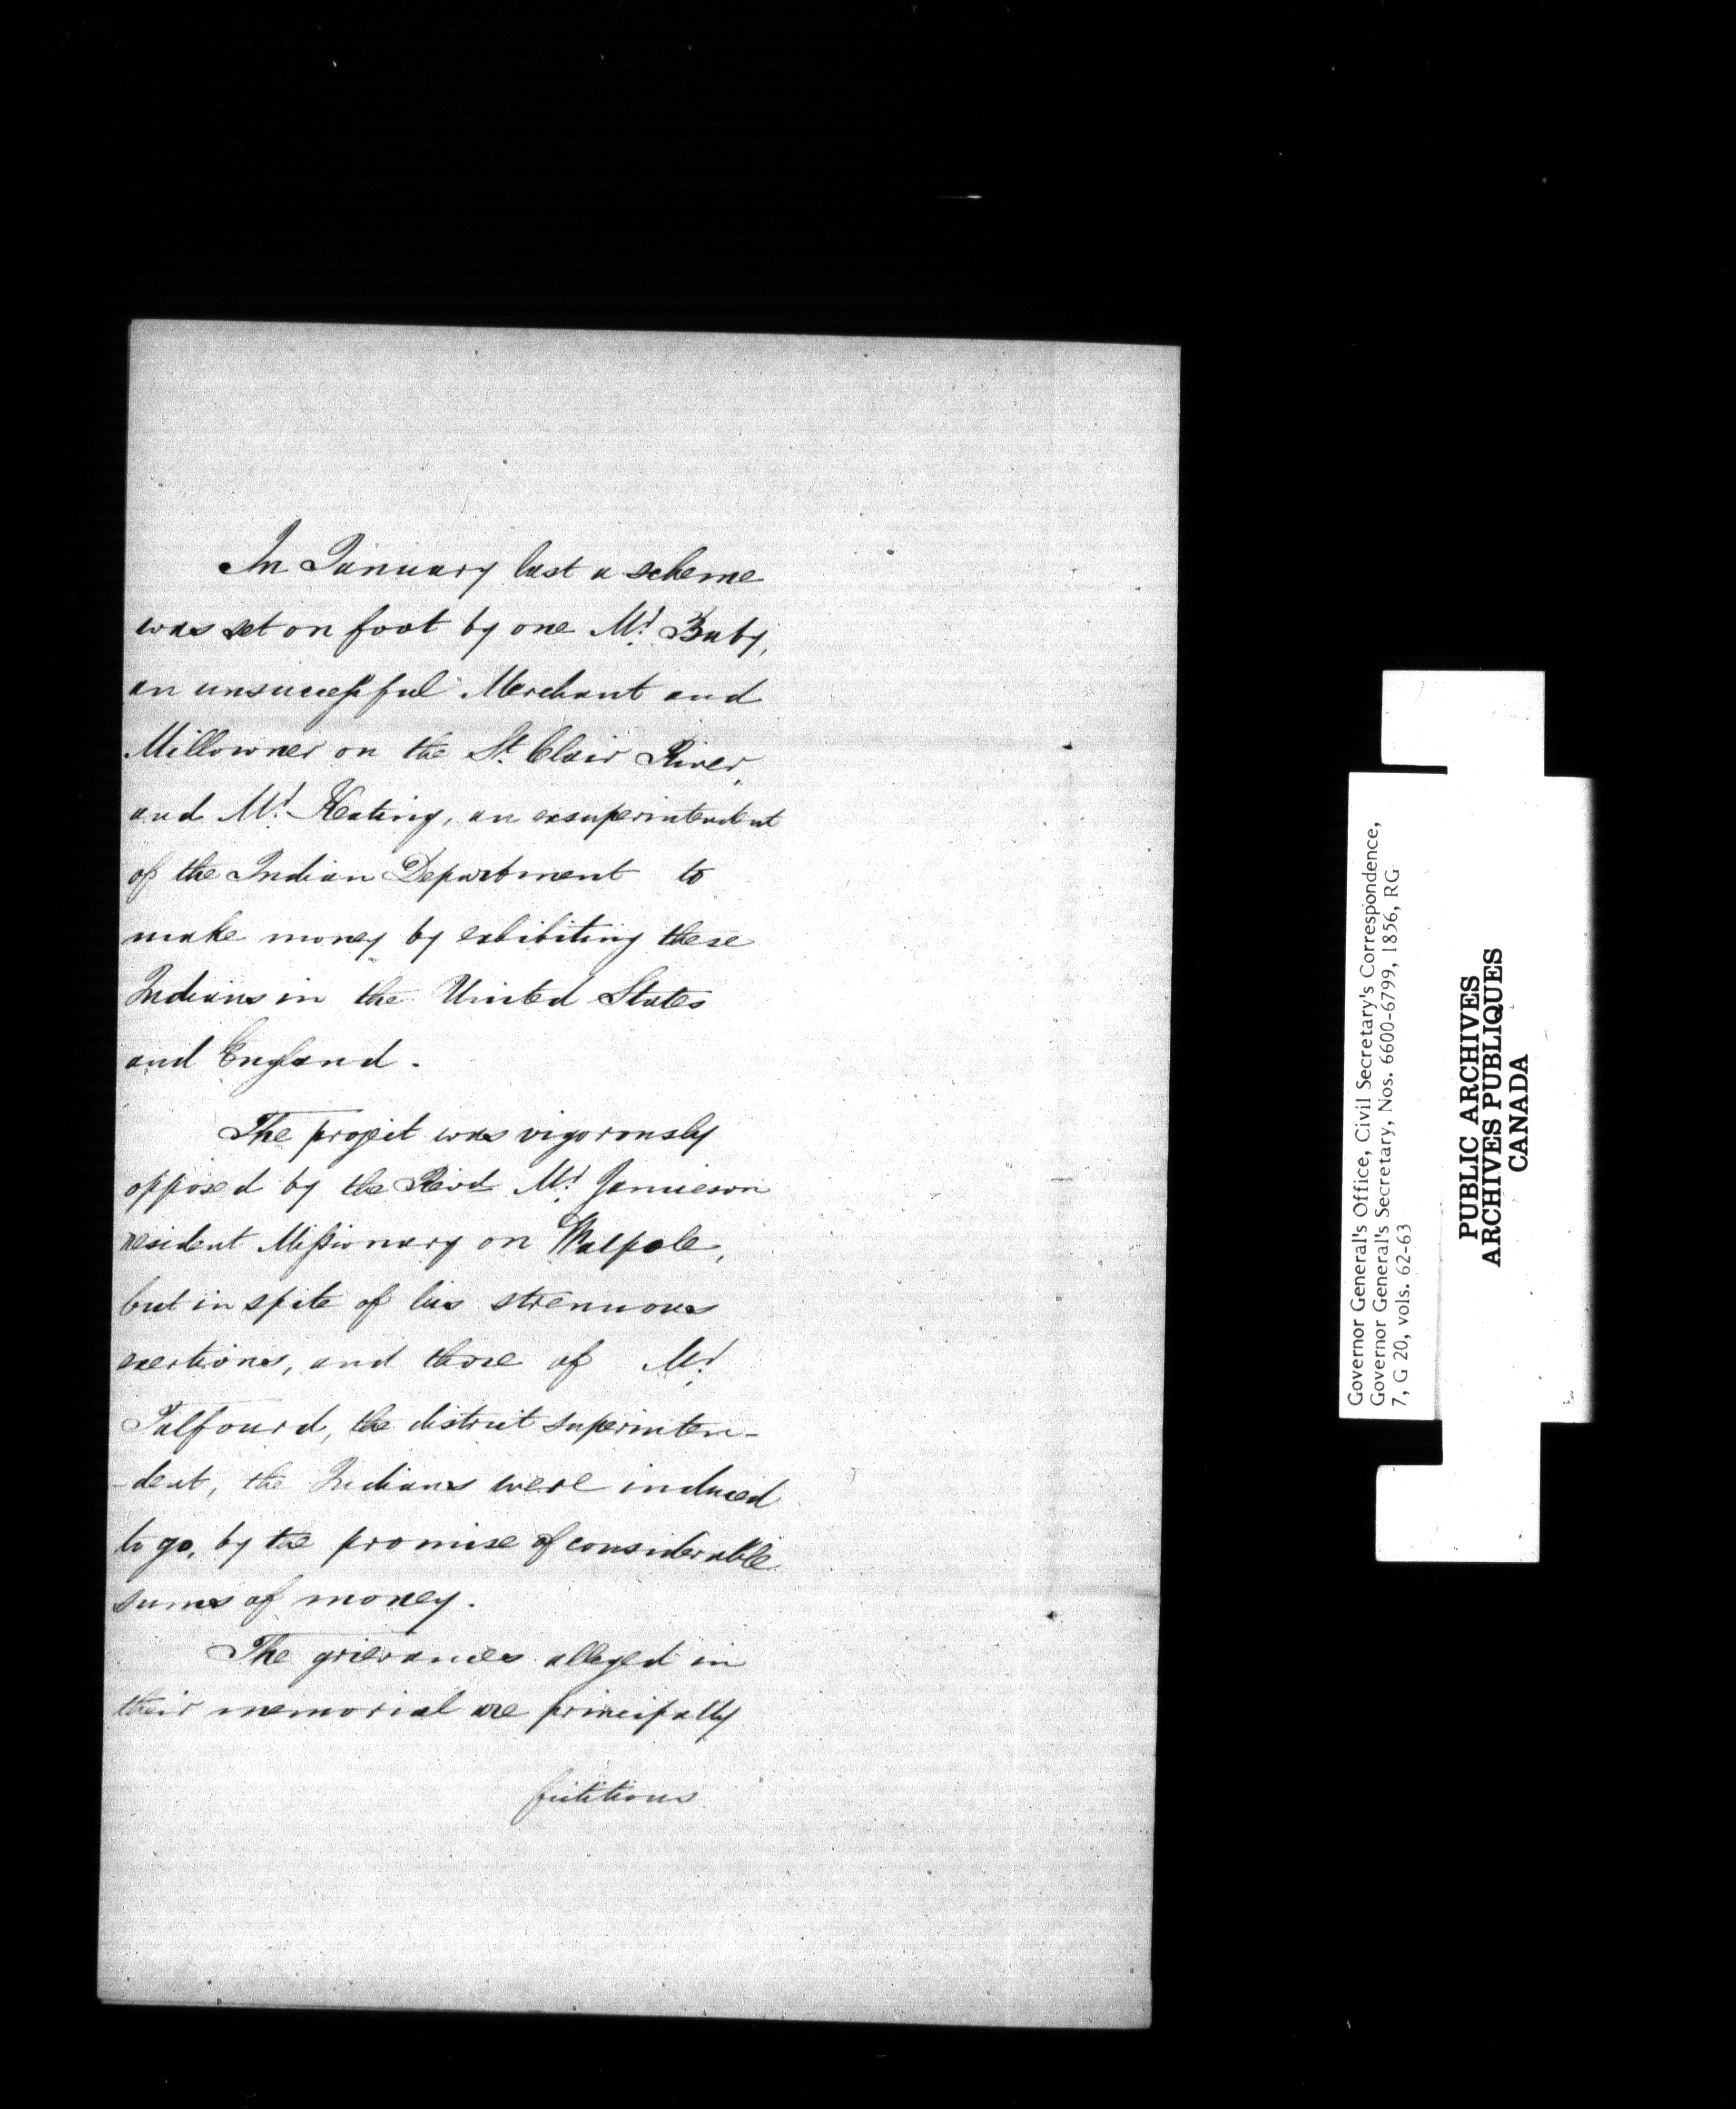 In January last a scheme
was set on foot by one Mr. Baby,
an unsuccessful Merchant and
Millowner on the St. Clair River,
and Mr. Keating, an exsuperintendent
of the Indian Department to
make money by exhibiting these
Indians in the United States
and England.
The project was vigorously
opposed by the Revd Mr. Jamieson
resident Missionary on Walpole,
but in spite of his strenuous
exertions, and those of Mr.
Talfourd, the district superinten-
-dent, the Indians were induced
to go, by the promise of considerable
sums of money.
The grievances alleged in
their memorial are principally
fictitious
Governor General's Office, Civil Secretary's Correspondence,
Governor General's Secretary, Nos. 6600-6799, 1856, RG
7, G 20, vols. 62-63
PUBLIC ARCHIVES
ARCHIVES PUBLIQUES
CANADA